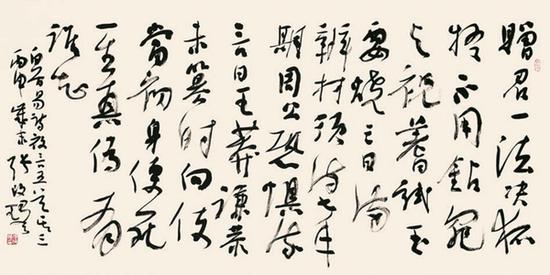 贈君一法决狐
疑不用鑽龜
与祝蓍試玉
要燒三日滿
辨材須待七年
期周公恐懼流
言日王莽謙恭
未篡時向使
當初身便死
一生真偽復
誰知
白居易詩放言五首其三
丙申歲末張改琴